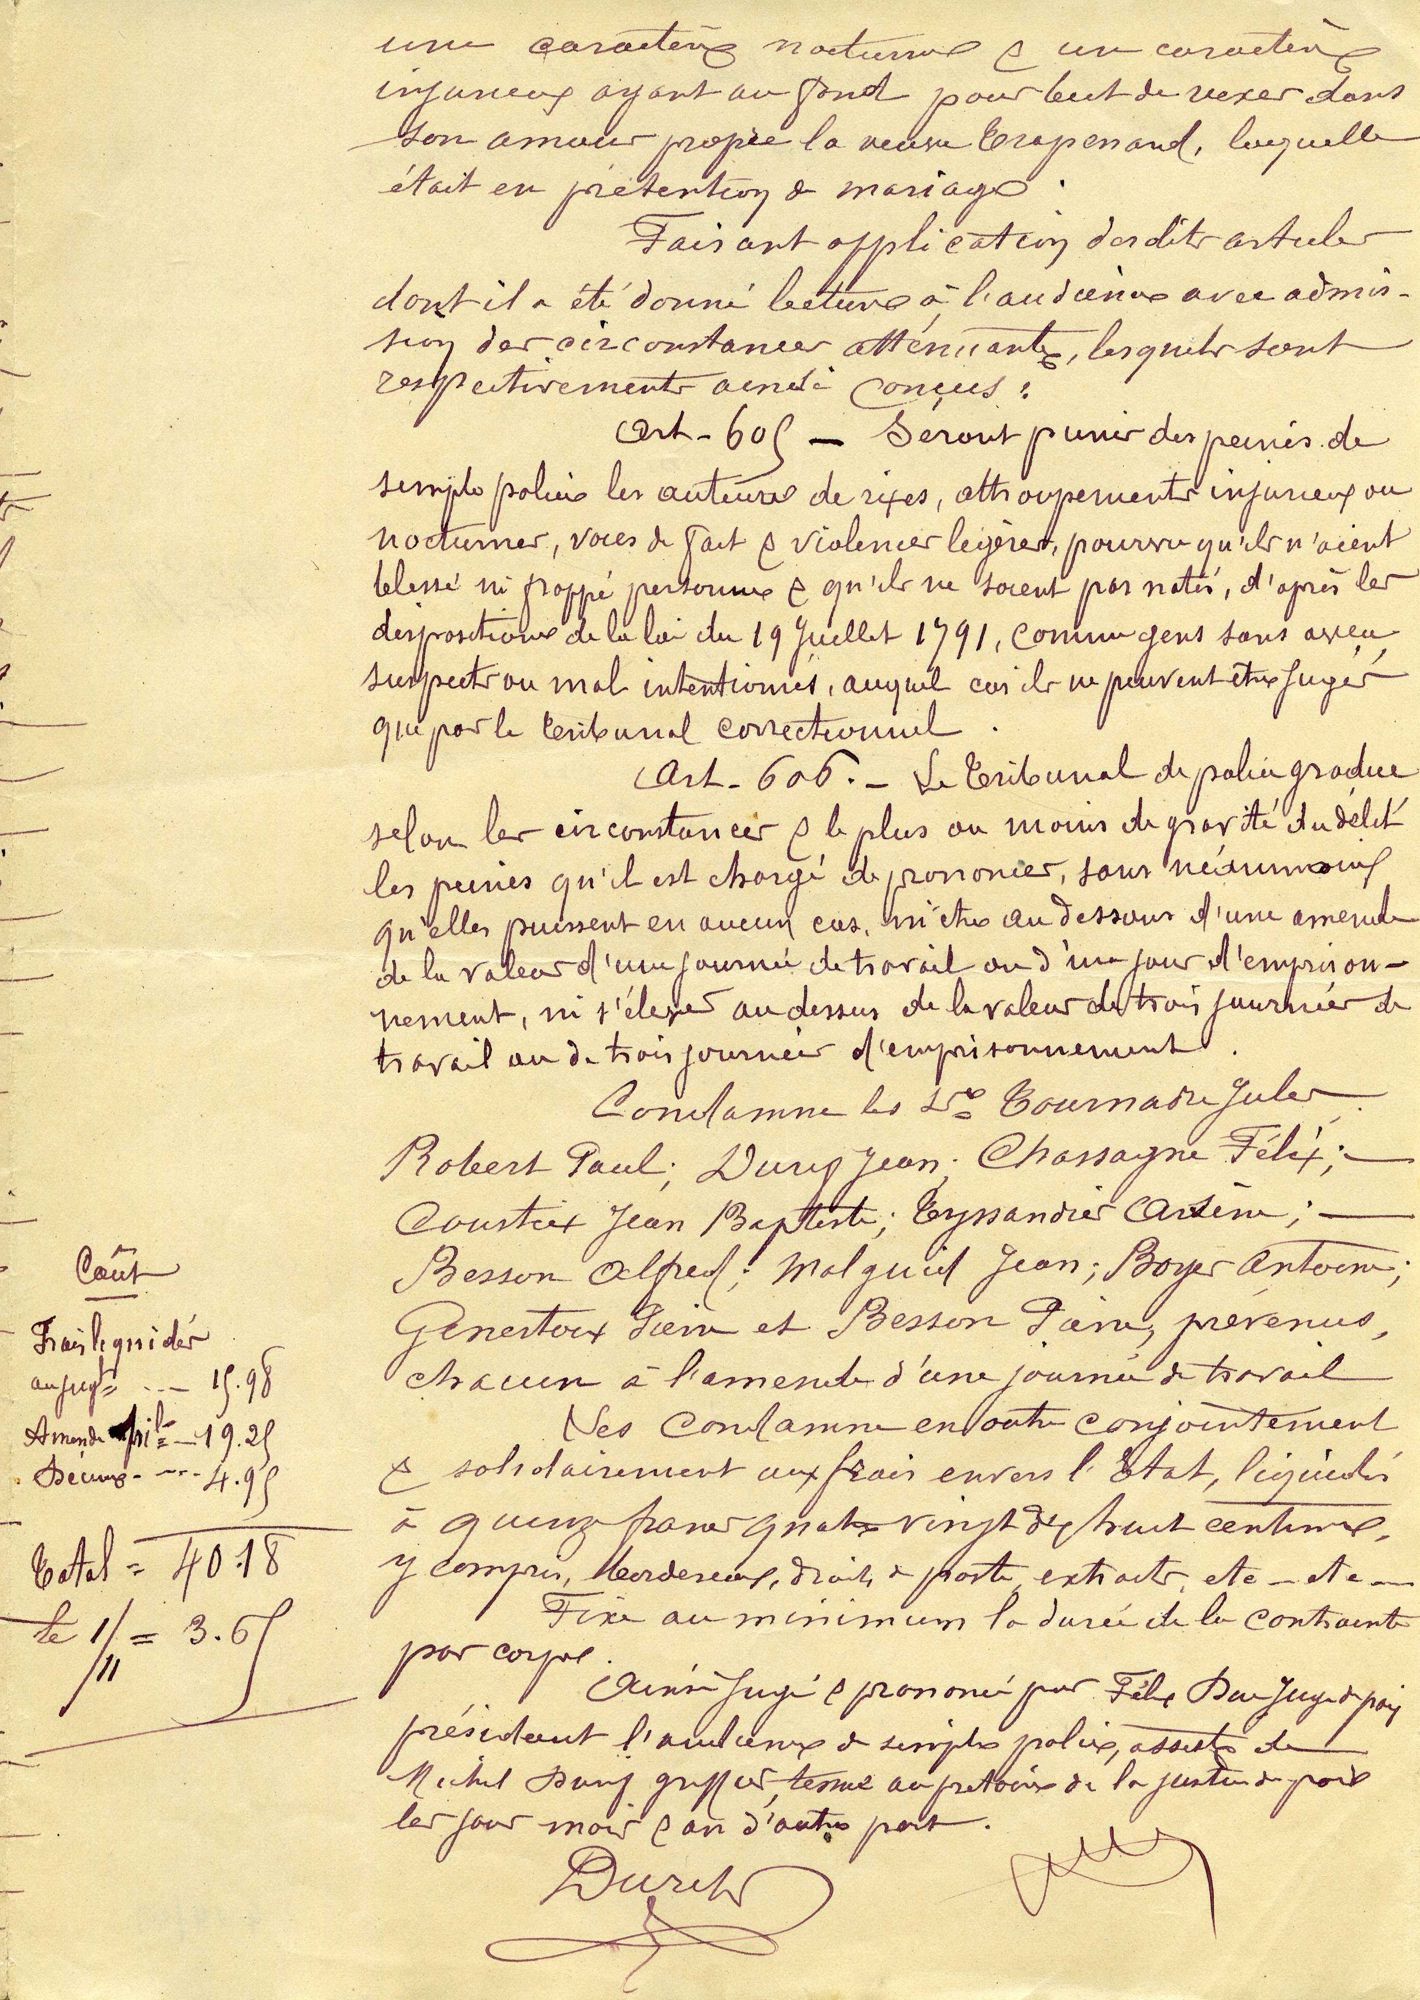 une caractère nocturne & un caractère
injurieux ayant au fond pour but de vexer dans
son amour propre la veuve Trapenard, laquelle
était en prétention de mariage.
Faisant application desdits articles
dont il a été donné lecture à l'audience avec admis-
sion des circonstances atténuantes, lesquels sont
respectivement ainsi conçus :
Art - 605 — Séront punis des peines de
simple police les auteurs de rixes, attroupements injurieux ou
nocturnes, voies de fait & violences légères, pourvu qu'ils n'aient
blessé ni frappé personne & qu'ils ne soient pas notés, d'après les
dispositions de la loi du 19 Juillet 1791, comme gens sans aveu
suspects ou mal intentionnés, auquel cas ils ne peuvent être jugés
que par le tribunal correctionnel.
Art - 606. — Le Tribunal de police gradue
selon les circonstances & le plus ou moins de gravité du délit
les peines qu'il est chargé de prononcer, sans néanmoins
qu'elles puissent en aucun cas, ni être au dessous d'une amende
de la valeur d'une journée de travail ou d'un jour d'emprison-
nement, ni s'élever au dessus de la valeur de trois journées de
travail ou de trois journées d'emprisonnement.
Condamne les Tournadre Jules
Robert Paul; Jean; Chassagne Félix; —
Coustix Jean Baptiste; Eyssandier Arsène; —
Besson Alfred; Malguid Jean; Boyer Antoine;
Genestoux Pierre et Besson Pierre, prévenus,
chacun à l'amende d'une journée de travail
Les condamne en outre conjointement
& solidairement aux frais envers l'Etat, liquidés
à quinze francs quatre vingt dix huit centimes,
y compris, bordereaux, droits de poste, extraits, etc — etc —
Fixe au minimum la durée de la contrainte
par corps.
Ainsi jugé & prononcé par Félix Juge de paix
présidant l'audience de simple police, assisté de
Michel greffier, tenue au prétoire de la justice de paix
les jour mois & an d'autre part.
Coût
Frais liquidés
au jugt = --- 15.98
Amende = — 19.25
Décimes - --- 4.95
Total = 40.18
le 1/11 = 3.65